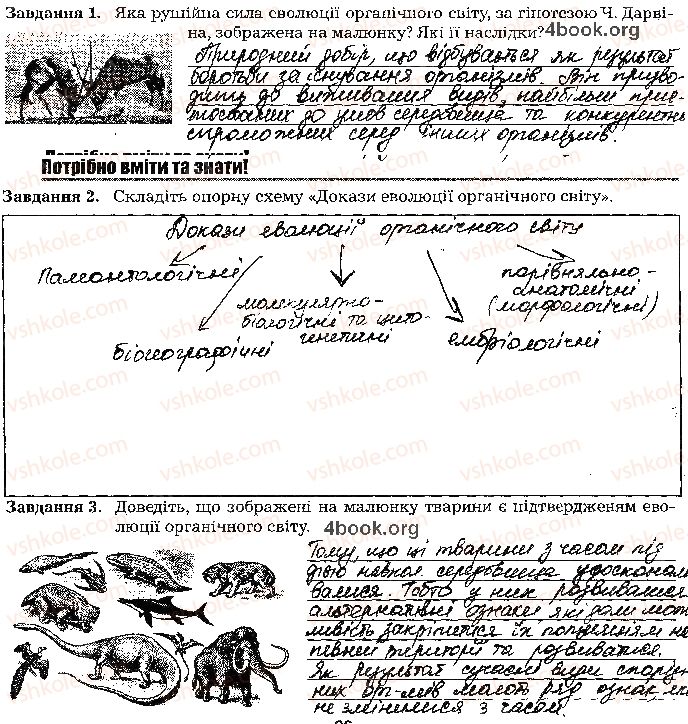 Завдання 1. Яка рушійна сила еволюції органічного світу, за гіпотезою Ч. Дарві-
на, зображена на малюнку? Які її наслідки? 4book.org
Природний добір, що відбувається як результат
боротьби за існування організмів. Він призво-
дить до виживання видів, найбільш прис-
тосованих до умов середовища та конкурентно
спроможних серед інших організмів.
Потрібно вміти та знати!
Завдання 2. Складіть опорну схему «Докази еволюції органічного світу».
Докази еволюції органічного світу
Палеонтологічні
біогеографічні
молекулярно-
біологічні та цито-
генетичні
ембріологічні
порівняльно-
анатомічні
(морфологічні)
Завдання 3. Доведіть, що зображені на малюнку тварини є підтвердженям ево-
люції органічного світу. 4book.org
Тому, що ці тварини з часом під
дією навкол середовища удосконал
валися. Тобто у них розвивалися
альтернативні ознаки які дали мож
ливість закріпитися їх популяціям на
певній території та розвиватися.
Як результат сучасні види спорідне
них от-мів мають ряд ознак, що
не змінилися з часом.